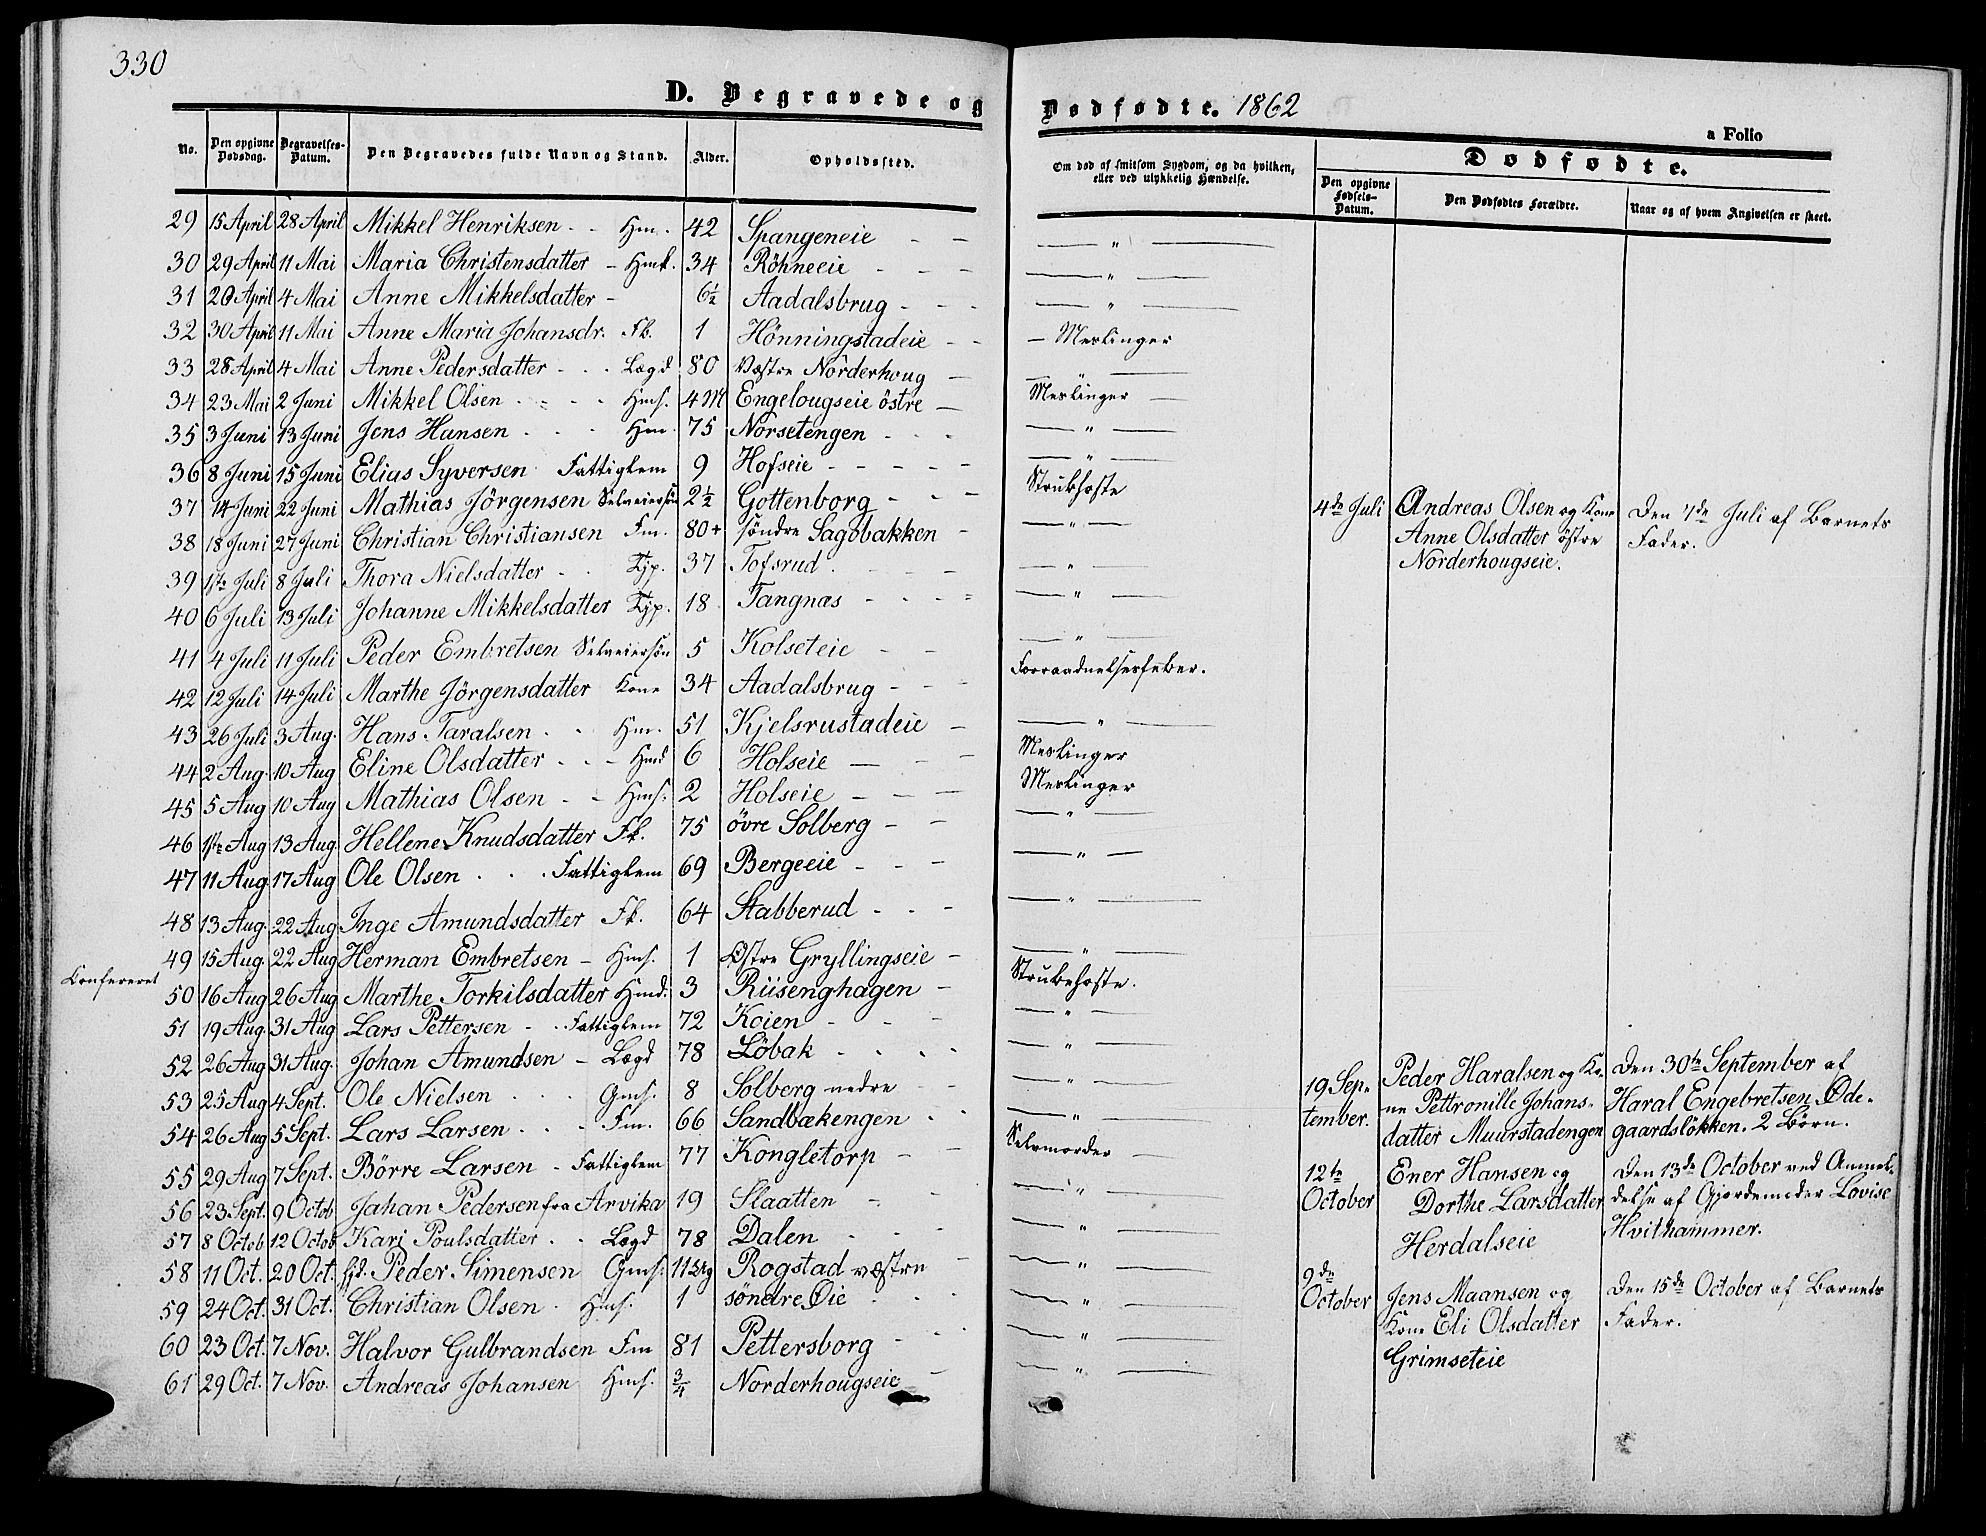 330
D. Begravede og Dødfødte. 1862
a Folio
No. Den opgivne Dødsdag. Begravelses-Datum. Den Begravedes fulde Navn og Stand. Alder. Opholdssted. Om død af smitsom Sygdom, og da hvilken, eller ved ulykkelig Hændelse.
Dødfødte.
Den opgivne Fødsels-Datum. Den Dødfødtes Forældre. Naar og af hvem Angivelsen er skeet.
29 15 April 28 April Mikkel Henriksen - - Hm. 42 Spangeneie - - — " —
30 29 April 11 Mai Maria Christensdatter - Hmk. 34 Röhneeie - - - — " —
31 20 April 4 Mai Anne Mikkelsdatter - 6½ Aadalsbrug - - - — " —
32 30 April 11 Mai Anne Maria Johansdr. Fb. 1 Hönningstadeie - - - Meslinger
33 28 April 4 Mai Anne Pedersdatter - - . Lægd 80 Væstre Norderhoug - — " —
34 23 Mai 2 Juni Mikkel Olsen . - - . Hms. 4 M Engelougseie östre - Meslinger —
35 3 Juni 13 Juni Jens Hansen . . . Hm. 75 Norsetengen - - - — " —
36 8 Juni 15 Juni Elias Syversen Fattiglem 9 Hofseie - - - - - — " —
37 14 Juni 22 Juni Mathias Jörgensen Selveiersön 2½ Gottenborg - - - Strubhoste
38 18 Juni 27 Juni Christian Christiansen Fm. 80+ söndre Sagbakken - — " —
39 1ste Juli 8 Juli Thora Nielsdatter - . Tjp. 37 Tofsrud . - - - — " —
40 6 Juli 13 Juli Johanne Mikkelsdatter Tjp. 18 Tangnæs - - - - — " —
41 4 Juli 11 Juli Peder Embretsen Selveiersön 5 Kolseteie - - — " —
42 12 Juli 14 Juli Marthe Jörgensdatter Kone 34 Aadalsbrug - - - Forraadnelsesfeber.
43 26 Juli 3 Aug. Hans Taralsen . - Hm. 51 Kjelsrustadeie - — " —
44 2 Aug. 10 Aug Eline Olsdatter - - - Hmd 6 Holseie — - - Meslinger
45 5 Aug 10 Aug Mathias Olsen - - Hms. 2 Holseie - - - Meslinger
46 1ste Aug 13 Aug. Hellene Knudsdatter Fk. 75 övre Solberg - - — " —
47 11 Aug 17 Aug Ole Olsen . . . Fattiglem 69 Bergeeie - - - — " —
48 13 Aug. 22 Aug Inge Amundsdatter Fk. 64 Stabberud - - - — " —
49 15 Aug. 22 Aug Herman Embretsen - Hms. 1 Østre Gryllingseie - — " —
Konfereret
50 16 Aug 26 Aug Marthe Torkilsdatter Hmd. 3 Riisenghagen - Strubehoste.
51 19 Aug. 31 Aug Lars Pettersen - . Fattiglem 72 Koien - - - — " —
52 26 Aug 31 Aug. Johan Amundsen - Lægd 78 Löbak - - - - — " —
53 25 Aug 4 Sept. Ole Nielsen . . . Gms. 8 Solberg nedre - — " —
54 26 Aug 5 Sept. Lars Larsen . . . Fm. 66 Sandbækengen - - — " —
55 29 Aug 7 Sept. Börre Larsen - Fattiglem 77 Kongletorp - - Selvmorder —
56 23 Sept. 9 Octob Johan Pedersen fra Arvika 19 Slaatten - - — " —
57 8 Octob 12 Octob Kari Poulsdatter . . Lægd 78 Dalen - - — " —
58 11 Oct. 20 Oct. Hd. Peder Simensen Gms. 11 Dg Rogstad væstre - — " —
59 24 Oct. 31 Oct. Christian Olsen . Hms. 1 söndre Øie - - - — " —
60 23 Oct. 7 Nov. Halvor Gulbrandsen Fm 81 Pettersborg - - - — " —
61 29 Oct. 7 Nov. Andreas Johansen Hms. ¾ Norderhougseie - — " —
4de Juli Andreas Olsen og Kone Den 7de Juli af Barnets
Anne Olsdatter östre Fader.
Norderhougseie.
19 Sep- Peder Haralsen og Ko- Den 30te September af
tember. ne Pettronille Johans- Haral Engebretsen Øde-
datter Muurstadengen gaardslökken. 2 Börn.
12te Ener Hansen og Den 13de October ved Anmel-
October Dorthe Larsdatter delse af Gjordemoder Lovise
Herdalseie Hvithammer.
9de
October Jens Maansen og Den 15de October af Barnets
Kone Eli Olsdatter Fader.
Grimseteie